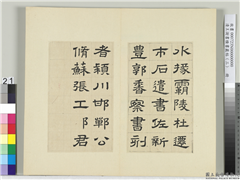 水掾霸陵杜遷
市石遣書佐新
豐郭香察書刻
者潁川邯鄲公
脩蘇張工郭君